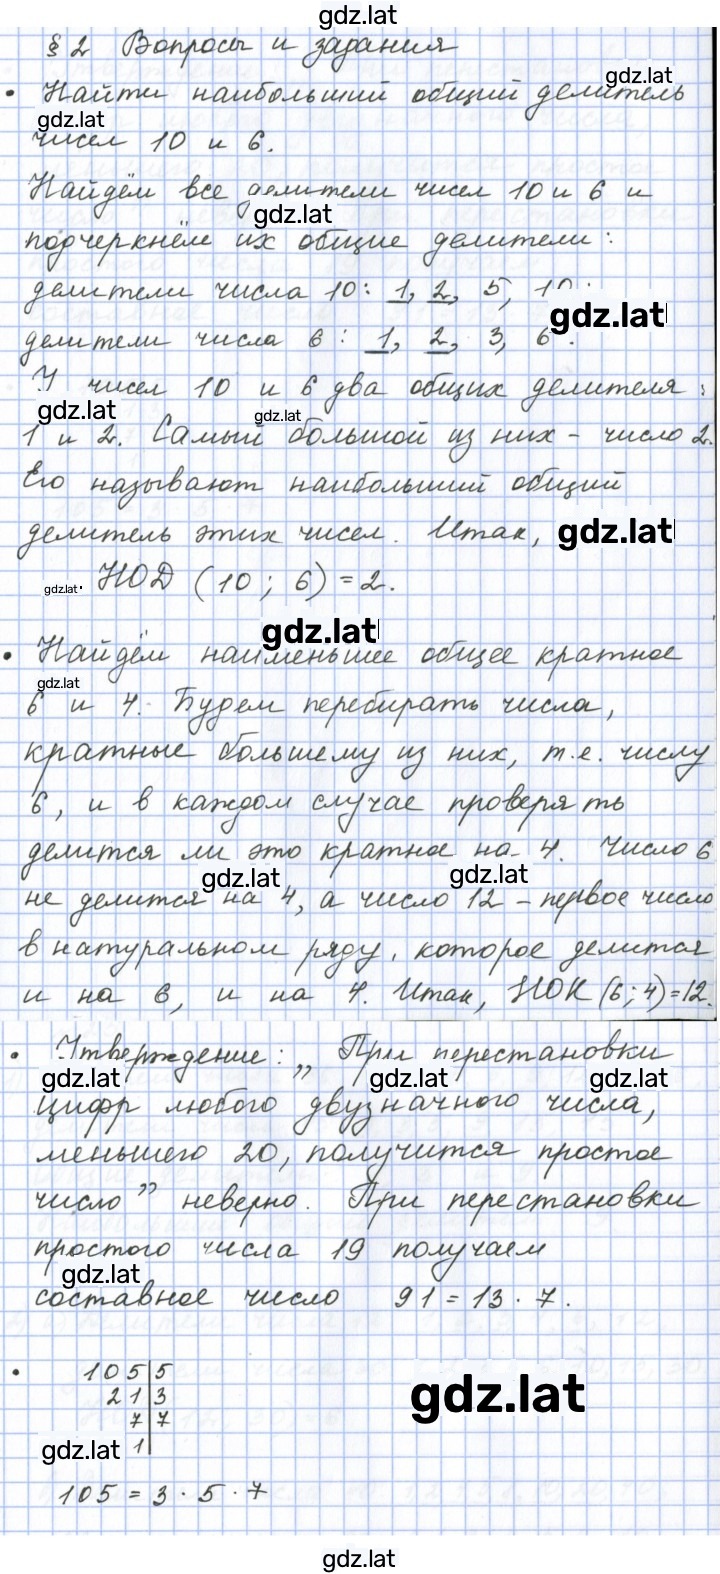 gdz.lat
§ 2 Вопросы и задания
gdz.lat
• Найти наибольший общий делитель
gdz.lat
чисел 10 и 6.
Найдём все делители чисел 10 и 6 и
gdz.lat
подчеркнём их общие делители:
делители числа 10: 1, 2, 5, 10;
gdz.lat
делители числа 6: 1, 2, 3, 6.
У чисел 10 и 6 два общих делителя:
gdz.lat gdz.lat
1 и 2. Самый большой из них - число 2.
Его называют наибольший общий
делитель этих чисел. Итак, gdz.lat
gdz.lat НОД (10; 6) = 2.
gdz.lat
• Найдём наименьшее общее кратное
gdz.lat
6 и 4. Будем перебирать числа,
кратные большему из них, т.е. числу
6, и в каждом случае проверять
делится ли это кратное на 4. Число 6
gdz.lat gdz.lat
не делится на 4, а число 12 - первое число
в натуральном ряду, которое делится
и на 6, и на 4. Итак, НОК (6; 4) = 12.
• Утверждение: „При перестановки
gdz.lat gdz.lat gdz.lat
цифр любого двузначного числа,
меньшего 20, получится простое
число” неверно. При перестановки
простого числа 19 получаем
gdz.lat
составное число 91 = 13 · 7.
• 105|5
21|3
gdz.lat
7|7
gdz.lat 1|
105 = 3 · 5 · 7
gdz.lat